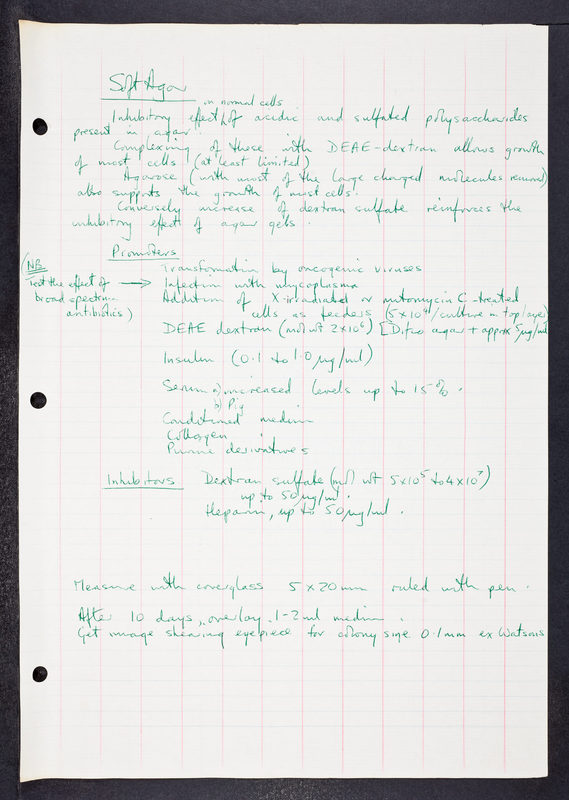 Soft Agar
on normal cells
Inhibitory effect of acidic and sulfated polysaccharides
present in agar.
Complexing of these with DEAE-dextran allows growth
of most cells (at least limited)
Agarose (with most of the large charged molecules removed)
also supports the growth of most cells.
Conversely increase of dextran sulfate reinforces the
inhibitory effect of agar gels.
Promoters
(NB
Test the effect of
broad spectrum
antibiotics)
Transformation by oncogenic viruses
→ Infection with mycoplasma
Addition of X-irradiated or mitomycin C-treated
cells as feeders (5×10⁴/culture in top layer)
DEAE dextran (mol wt 2×10⁶) [Difco agar + approx 5µg/ml
Insulin (0.1 to 1.0 µg/ml)
Serum a) increased levels up to 15%.
b) Pig
Conditioned medium
Collagen
Purine derivatives
Inhibitors Dextran sulfate (mol wt 5×10⁵ to 4×10⁷)
up to 50µg/ml.
Heparin, up to 50µg/ml.
Measure with coverglass 5×20mm ruled with pen.
After 10 days, overlay 1-2ml medium.
Get image shearing eyepiece for colony size 0.1mm ex Watsons